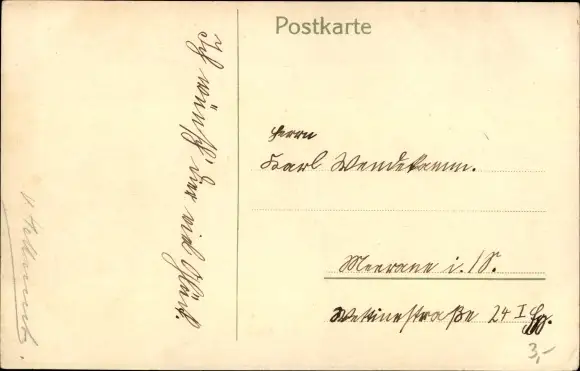 Postkarte
Ich wünsch' dier viel Glück.
Herrn
Karl Wendekamm.
Meerane i./S.
Wettinestraße 24 I
3,-